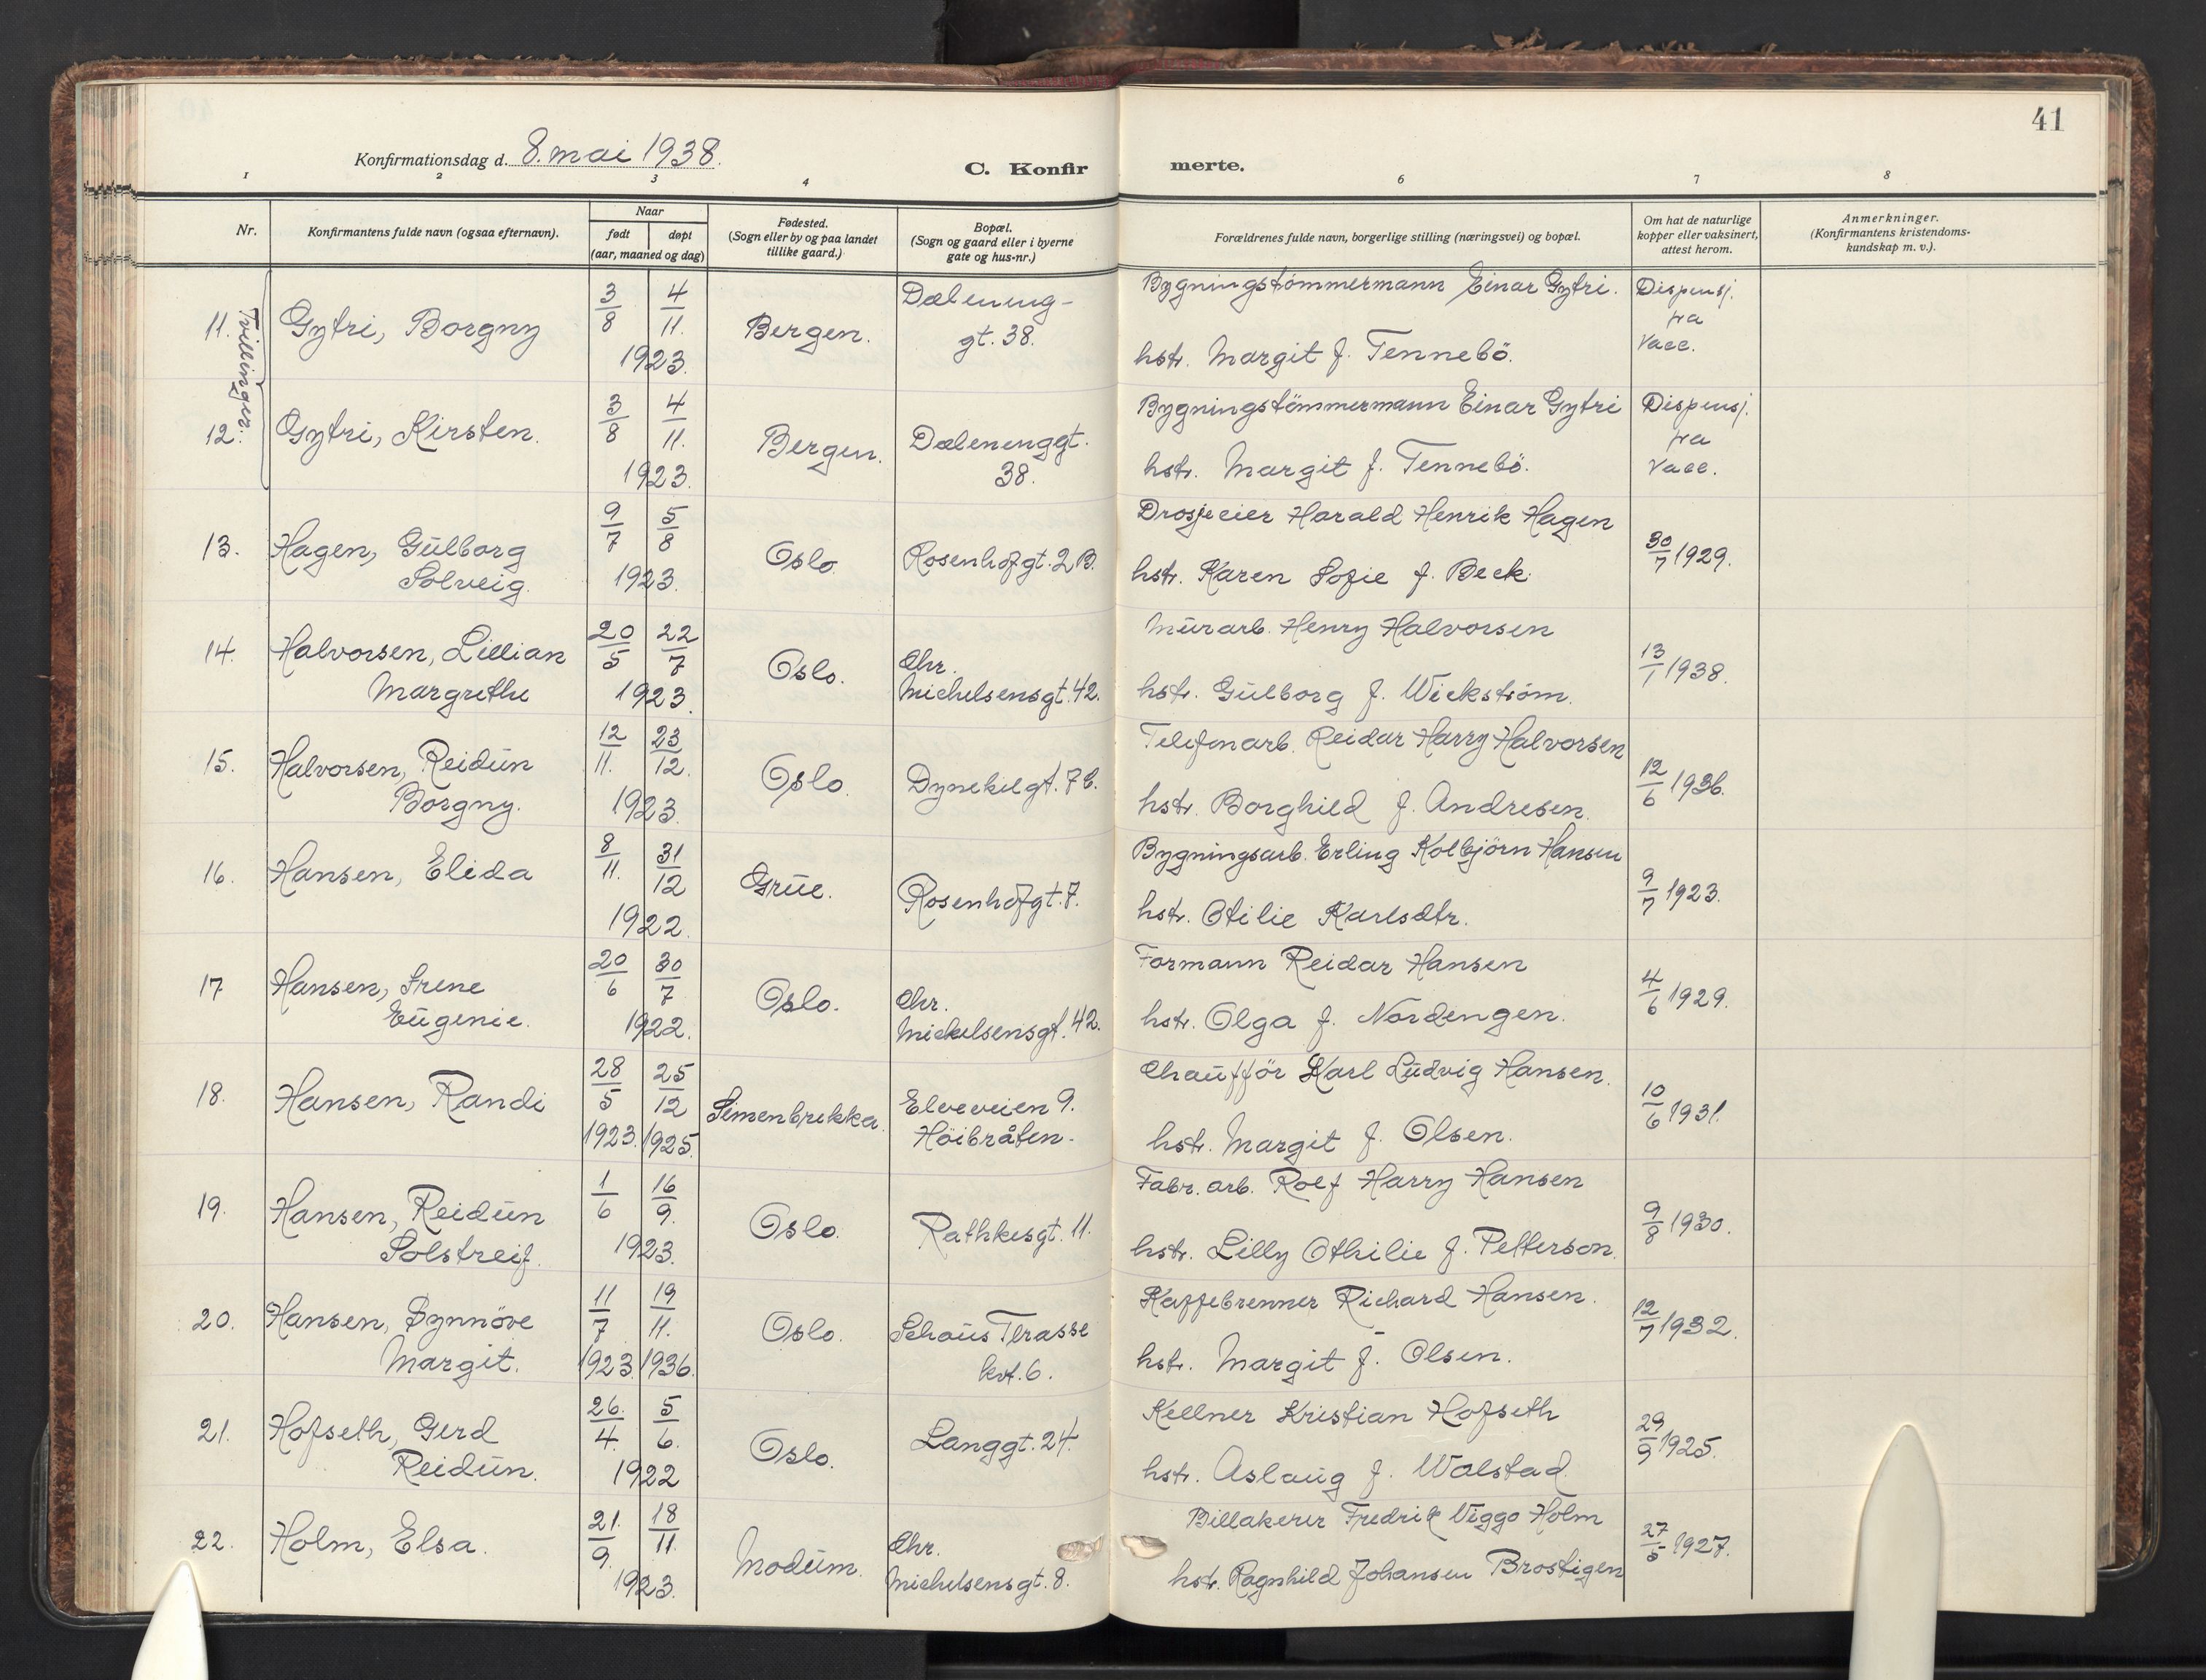 41
Konfirmationsdag d. 8. mai 1938.
C. Konfirmerte.
1 2 3 4 6 7 8
Nr.
Konfirmantens fulde navn (ogsaa efternavn).
Naar
født døpt
(aar, maaned og dag)
Fødested.
(Sogn eller by og paa landet
tillike gaard.)
Bopæl.
(Sogn og gaard eller i byerne
gate og hus-nr.)
Forældrenes fulde navn, borgerlige stilling (næringsvei) og bopæl.
Om hat de naturlige
kopper eller vaksinert,
attest herom.
Anmerkninger.
(Konfirmantens kristendoms-
kundskap m. v.).
Tvillinger.
11. Gytri, Borgny
3/8 4/11.
1923.
Bergen.
Dæleneng-
gt. 38.
Bygningstömmermann Einar Gytri.
hstr. Margit f. Tennebö.
Dispensj.
fra
Vacc.
12. Gytri, Kirsten.
3/8 4/11.
1923.
Bergen.
Dælenenggt.
38.
Bygningstömmermann Einar Gytri
hstr. Margit f. Tennebö.
Dispensj.
fra
Vacc.
13. Hagen, Gūlborg
Solveig.
9/7 5/8
1923.
Oslo
Rosenhofgt. 2 B.
Drosjeeier Harald Henrik Hagen
hstr. Karen Sofie f. Beck.
30/7 1929.
14. Halvorsen, Lillian
Margrethe
20/5 22/7
1923.
Oslo.
Chr.
Michelsensgt. 42.
Mūrarb. Henry Halvorsen
hstr. Gūlborg f. Wickström.
13/1 1938.
15. Halvorsen, Reidūn
Borgny.
12/11. 23/12.
1923.
Oslo.
Dynekilgt. 7 b.
Telefonarb. Reidar Harry Halvorsen
hstr. Borghild f. Andresen.
12/6 1936.
16. Hansen, Elida
8/11. 31/12
1922.
Grūe.
Rosenhofgt. 7.
Bygningsarb. Erling Kolbjörn Hansen
hstr. Otilie Karlsdtr.
9/7 1923.
17 Hansen, Irene
Eūgenie.
20/6 30/7
1922.
Oslo.
Chr.
Michelsensgt. 42.
Formann Reidar Hansen
hstr. Olga f. Nordengen.
4/6 1929.
18. Hansen, Randi
28/5 25/12
1923. 1925.
Simenbrekka.
Elveveien 9.
Höibråten.
Chaufför Karl Lūdvig Hansen.
hstr. Margit f. Olsen.
10/6 1931.
19. Hansen, Reidūn
Solstreif.
1/6 16/9.
1923.
Oslo.
Rathkesgt. 11.
Fabr. arb. Rolf Harry Hansen
hstr. Lilly Othilie f. Petterson.
9/8 1930.
20. Hansen, Synnöve
Margit.
11/7 19/11.
1923. 1936.
Oslo.
Schoūs Terasse
kvt. 6.
Kaffebrenner Richard Hansen.
hstr. Margit f. Olsen.
12/7 1932.
21. Hofseth, Gerd
Reidūn.
26./4. 5/6.
1922
Oslo.
Langgt. 24.
Kellner Kristian Hofseth
hstr. Aslaūg f. Wolstad.
29/9 1925.
22. Holm, Elsa.
21./9. 18/11.
1923.
Modūm.
Chr.
Michelsensgt. 8.
Billakerer Fredrik Viggo Holm
hstr. Ragnhild Johansen Brostigen
27/5 1927.